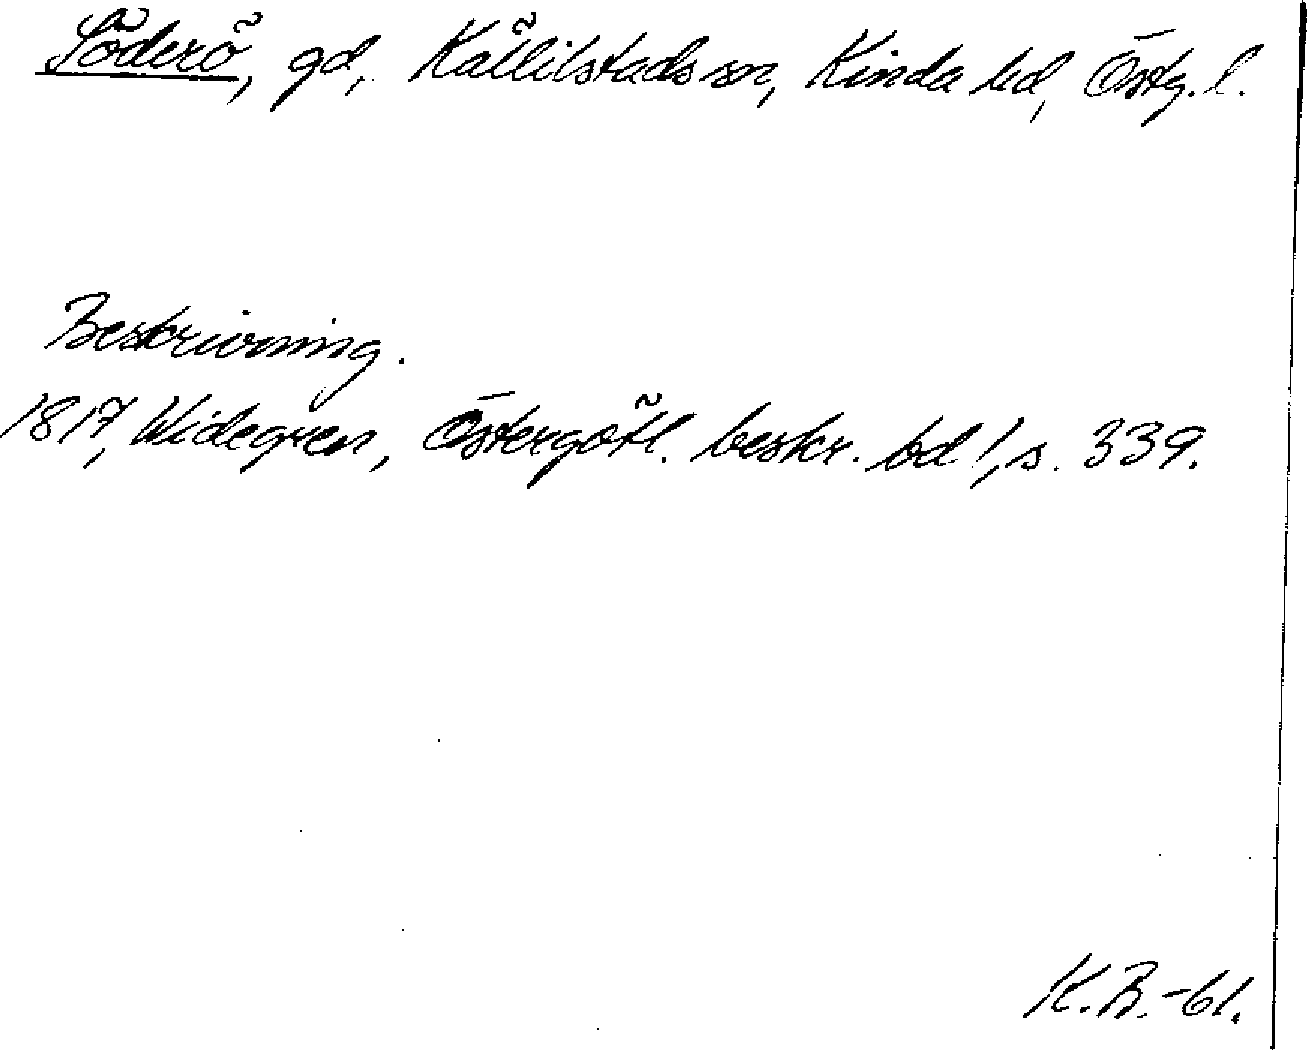 Söderö, gd, Kättilstads sn, Kinda hd, Östg. l.
Beskrivning.
1817, Widegren, Östergötl. beskr. bd 1, s. 339.
K.B.-61.